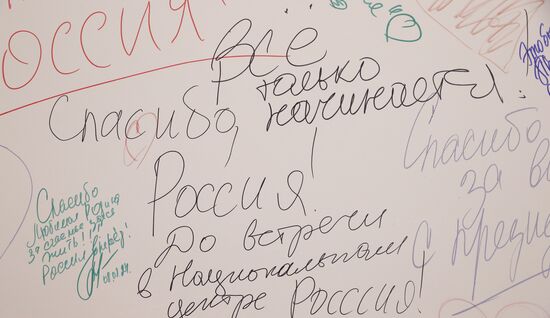 РОССИЯ
Всё
только
начинается!
Спасибо,
Россия!
До встречи
в Национальном
центре РОСССИЯ!
Спасибо
Любимая Родина
за счастье здесь
жить!!!
Россия вперёд!
Спасибо
за
С